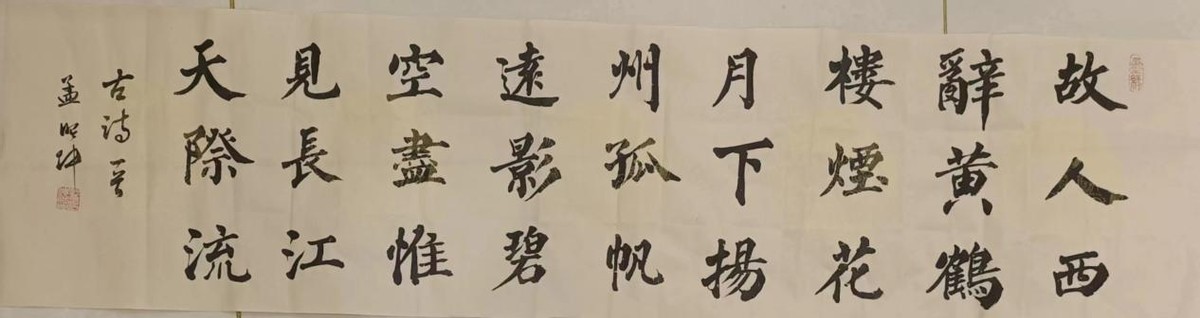 故人西
辭黄鶴
樓煙花
月下揚
州孤帆
遠影碧
空盡惟
見長江
天際流
古诗一首
孟